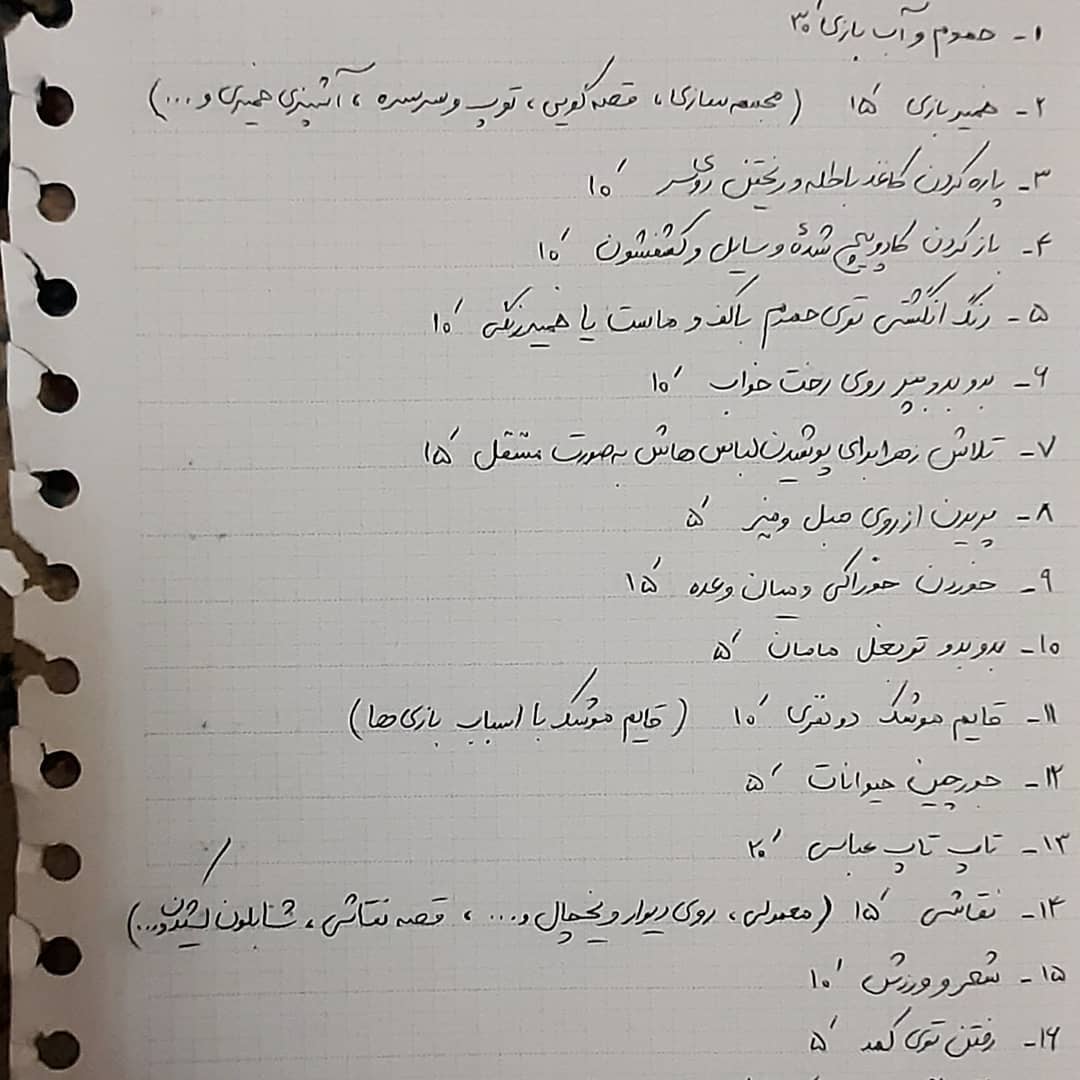 ۱- حموم و آب بازی ۳۰′
۲- خمیر بازی ۱۵′ (مجسمه سازی، قصه گویی، توپ و سرسره، آشپزی خمیری و...)
۳- پاره کردن کاغذ باطله و ریختن روی سر ۱۰′
۴- باز کردن کادوپیچ شدهٔ وسایل و کشفشون ۱۰′
۵- رنگ انگشتی توی حموم با کف و ماست یا خمیر رنگی ۱۰′
۶- بدو بدو بپر روی رخت خواب ۱۰′
۷- تلاش زهرا برای پوشیدن لباس هاش به صورت مستقل ۱۵′
۸- پریدن از روی مبل و میز ۵′
۹- خوردن خوراکی و میان وعده ۱۵′
۱۰- بدو بدو تو بغل مامان ۵′
۱۱- قایم موشک دو نفری ۱۰′ (قایم موشک با اسباب بازی ها)
۱۲- جورچین حیوانات ۵′
۱۳- تاپ تاپ عباسی ۲۰′
۱۴- نقاشی ۱۵′ (معمولی، روی دیوار و یخچال و...، قصه نقاشی، شابلون کشیدن و...)
۱۵- شعر و ورزش ۱۰′
۱۶- رفتن توی کمد ۵′